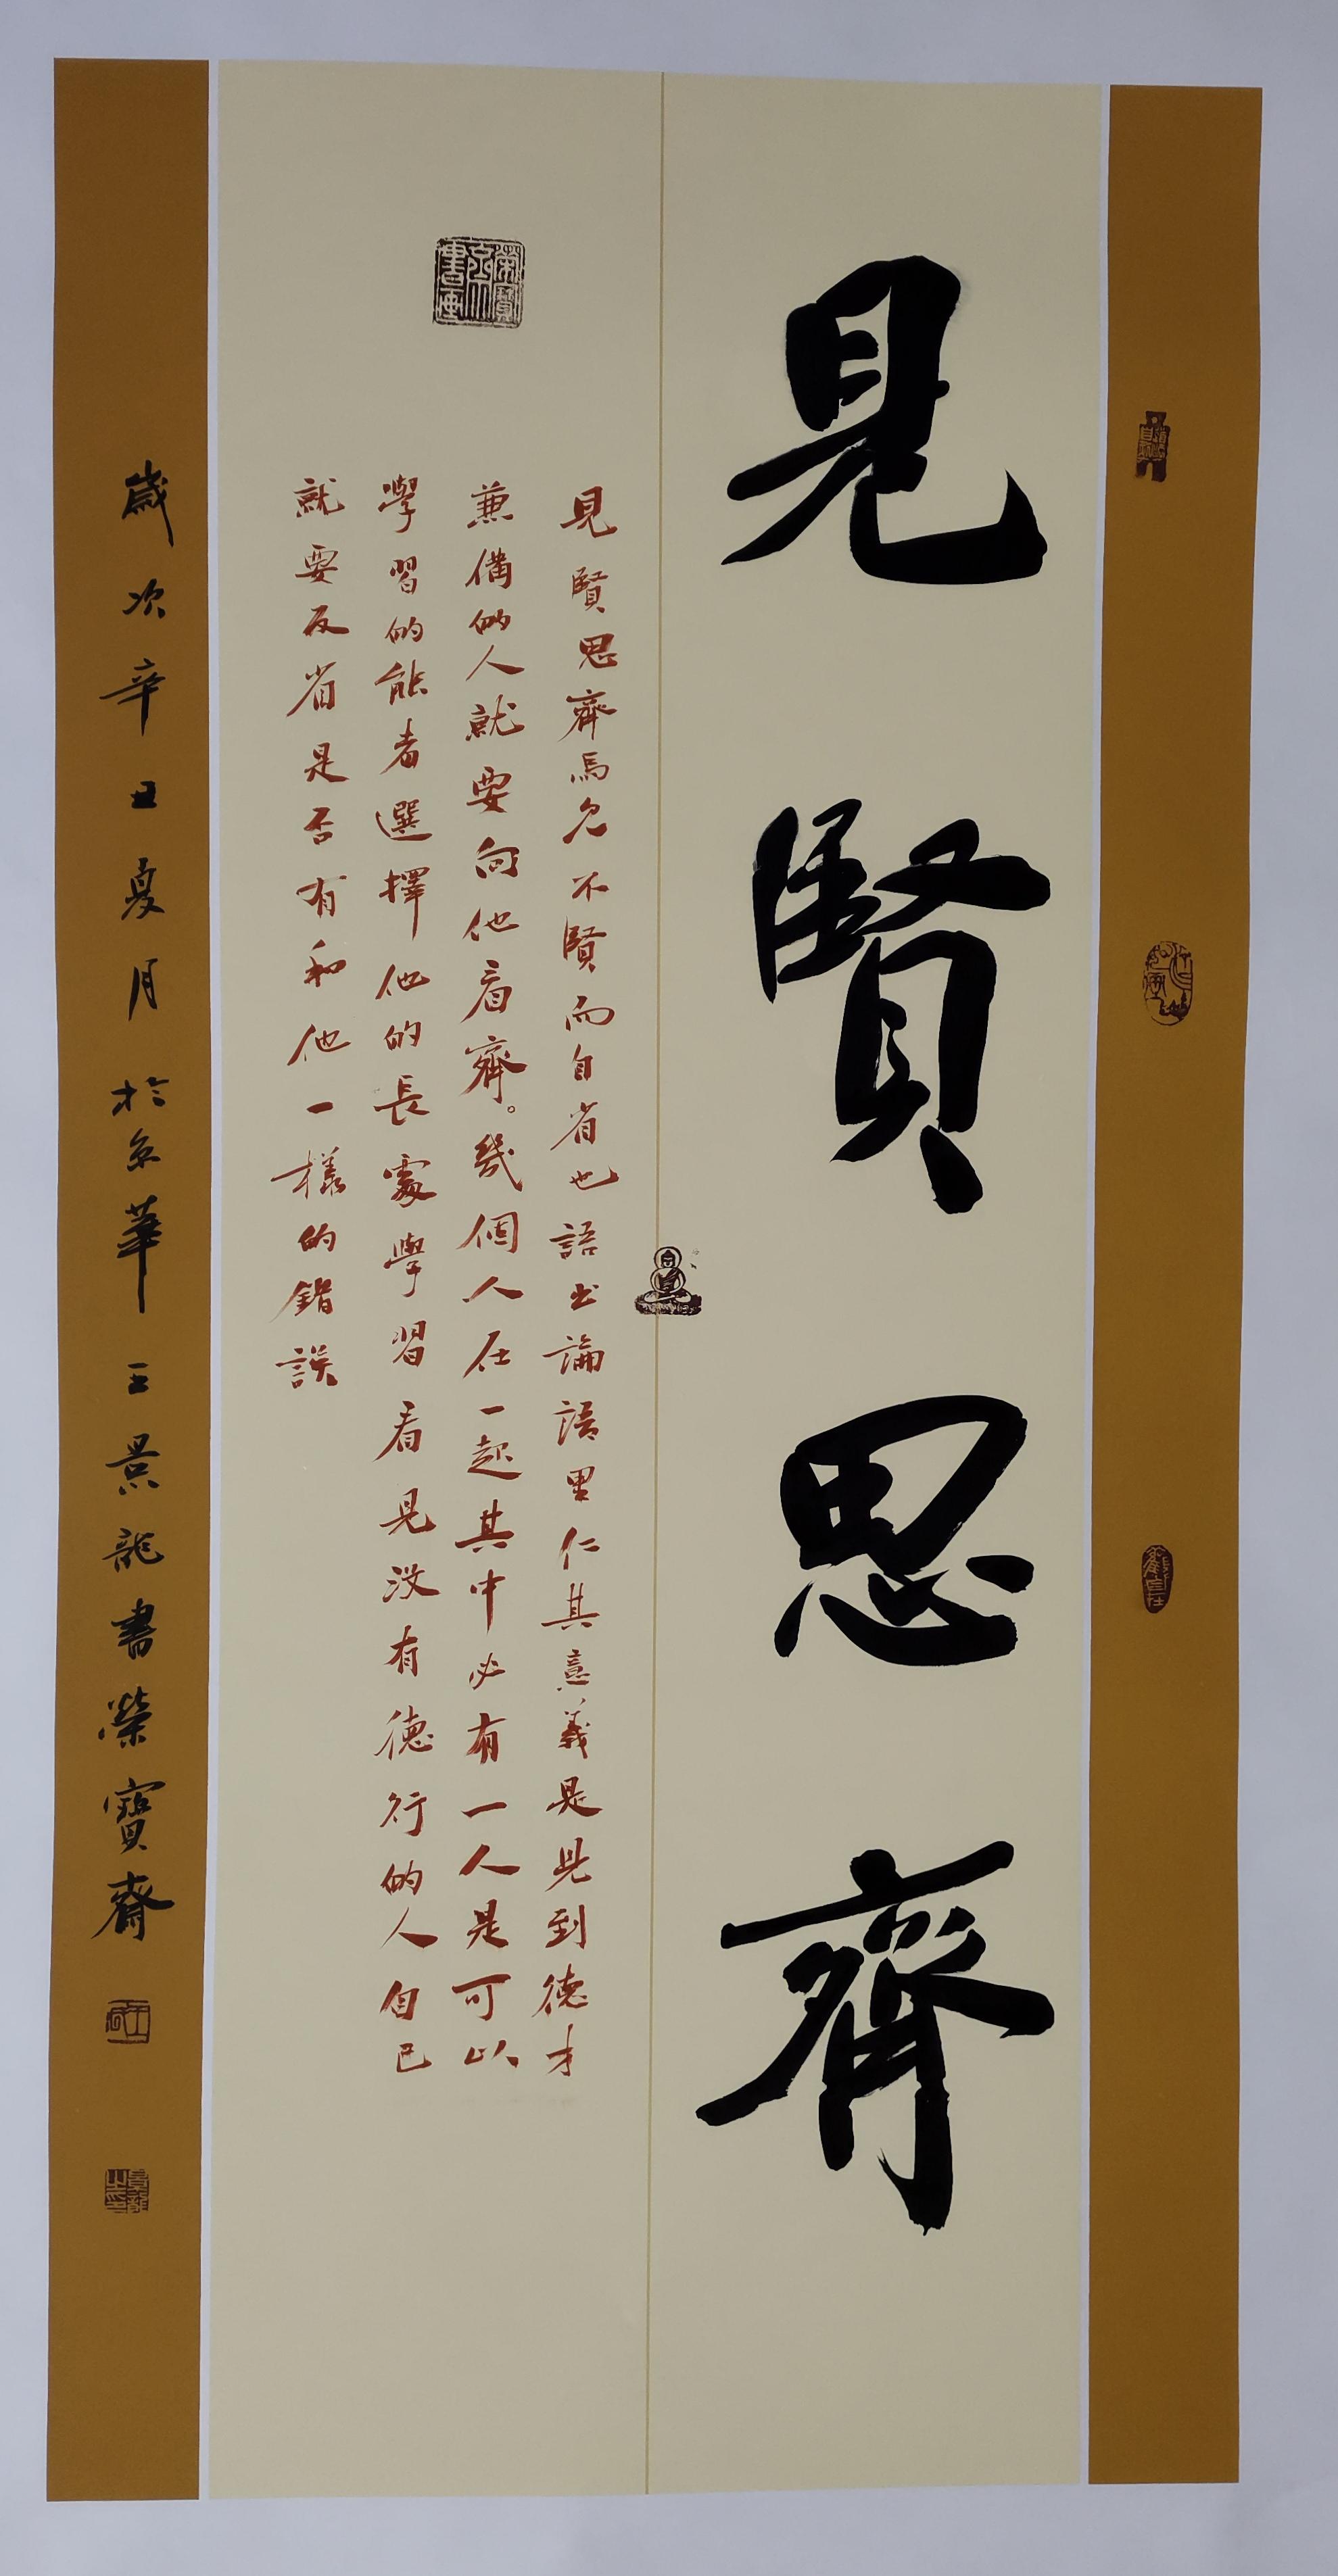 見賢思齊
見賢思齊焉見不賢而自省也語出論語里仁其意義是見到德才
兼備的人就要向他看齊。幾個人在一起其中必有一人是可以
學習的能者選擇他的長處學習看見没有德行的人自己
就要反省是否有和他一樣的錯誤
榮寶齋書画
歲次辛丑夏月於京華王景龍書榮寶齋
觀自在